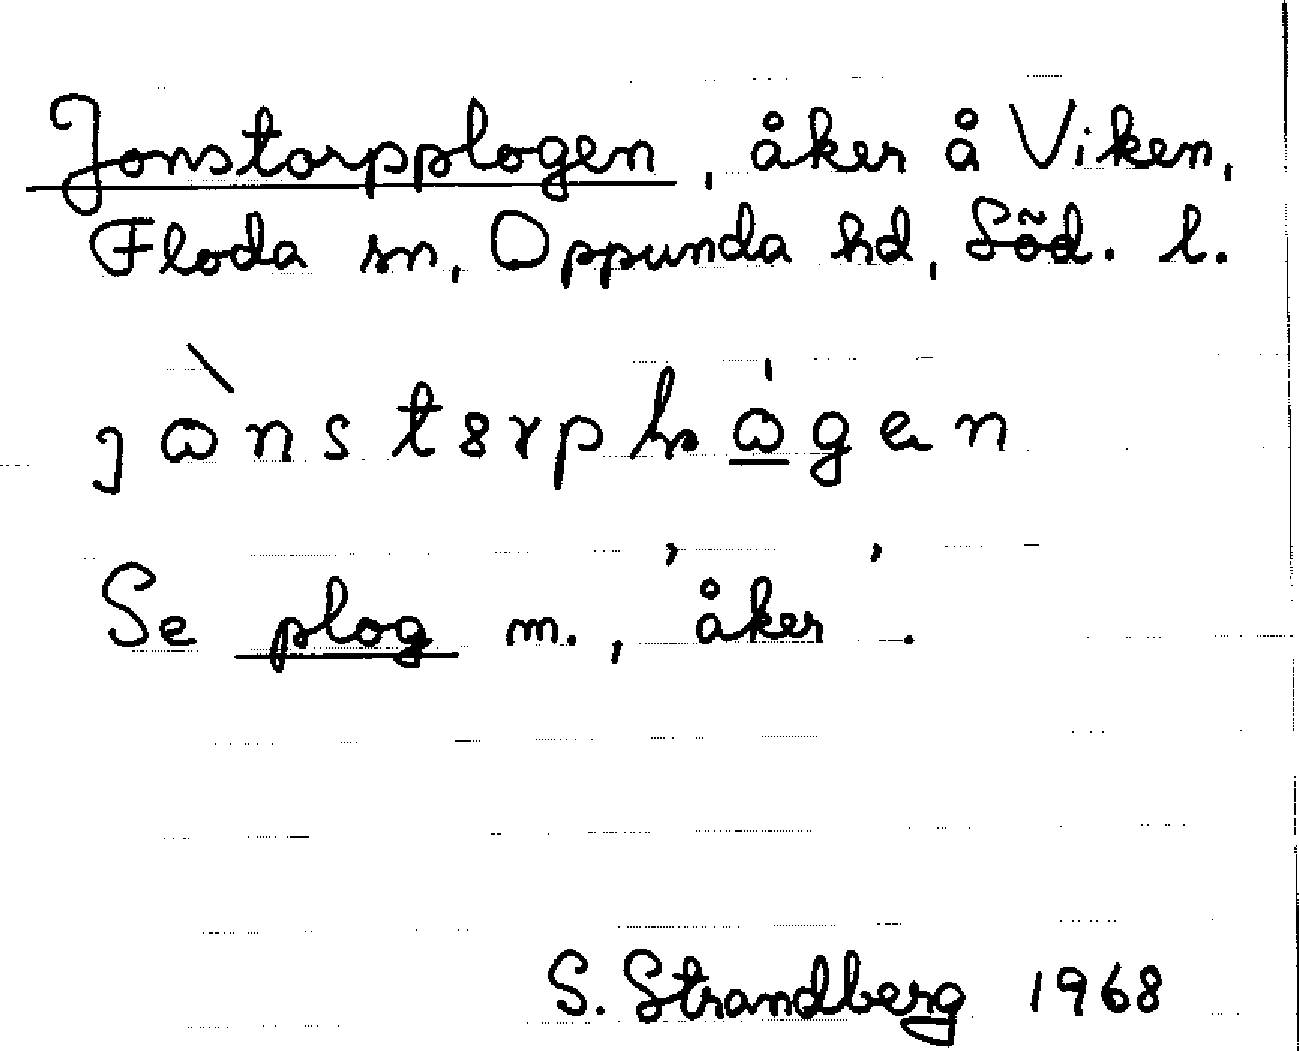 Jonstorpplogen, åker å Viken,
Floda sn, Oppunda hd, Söd. l.
Se plog m., 'åker'.
S. Strandberg 1968